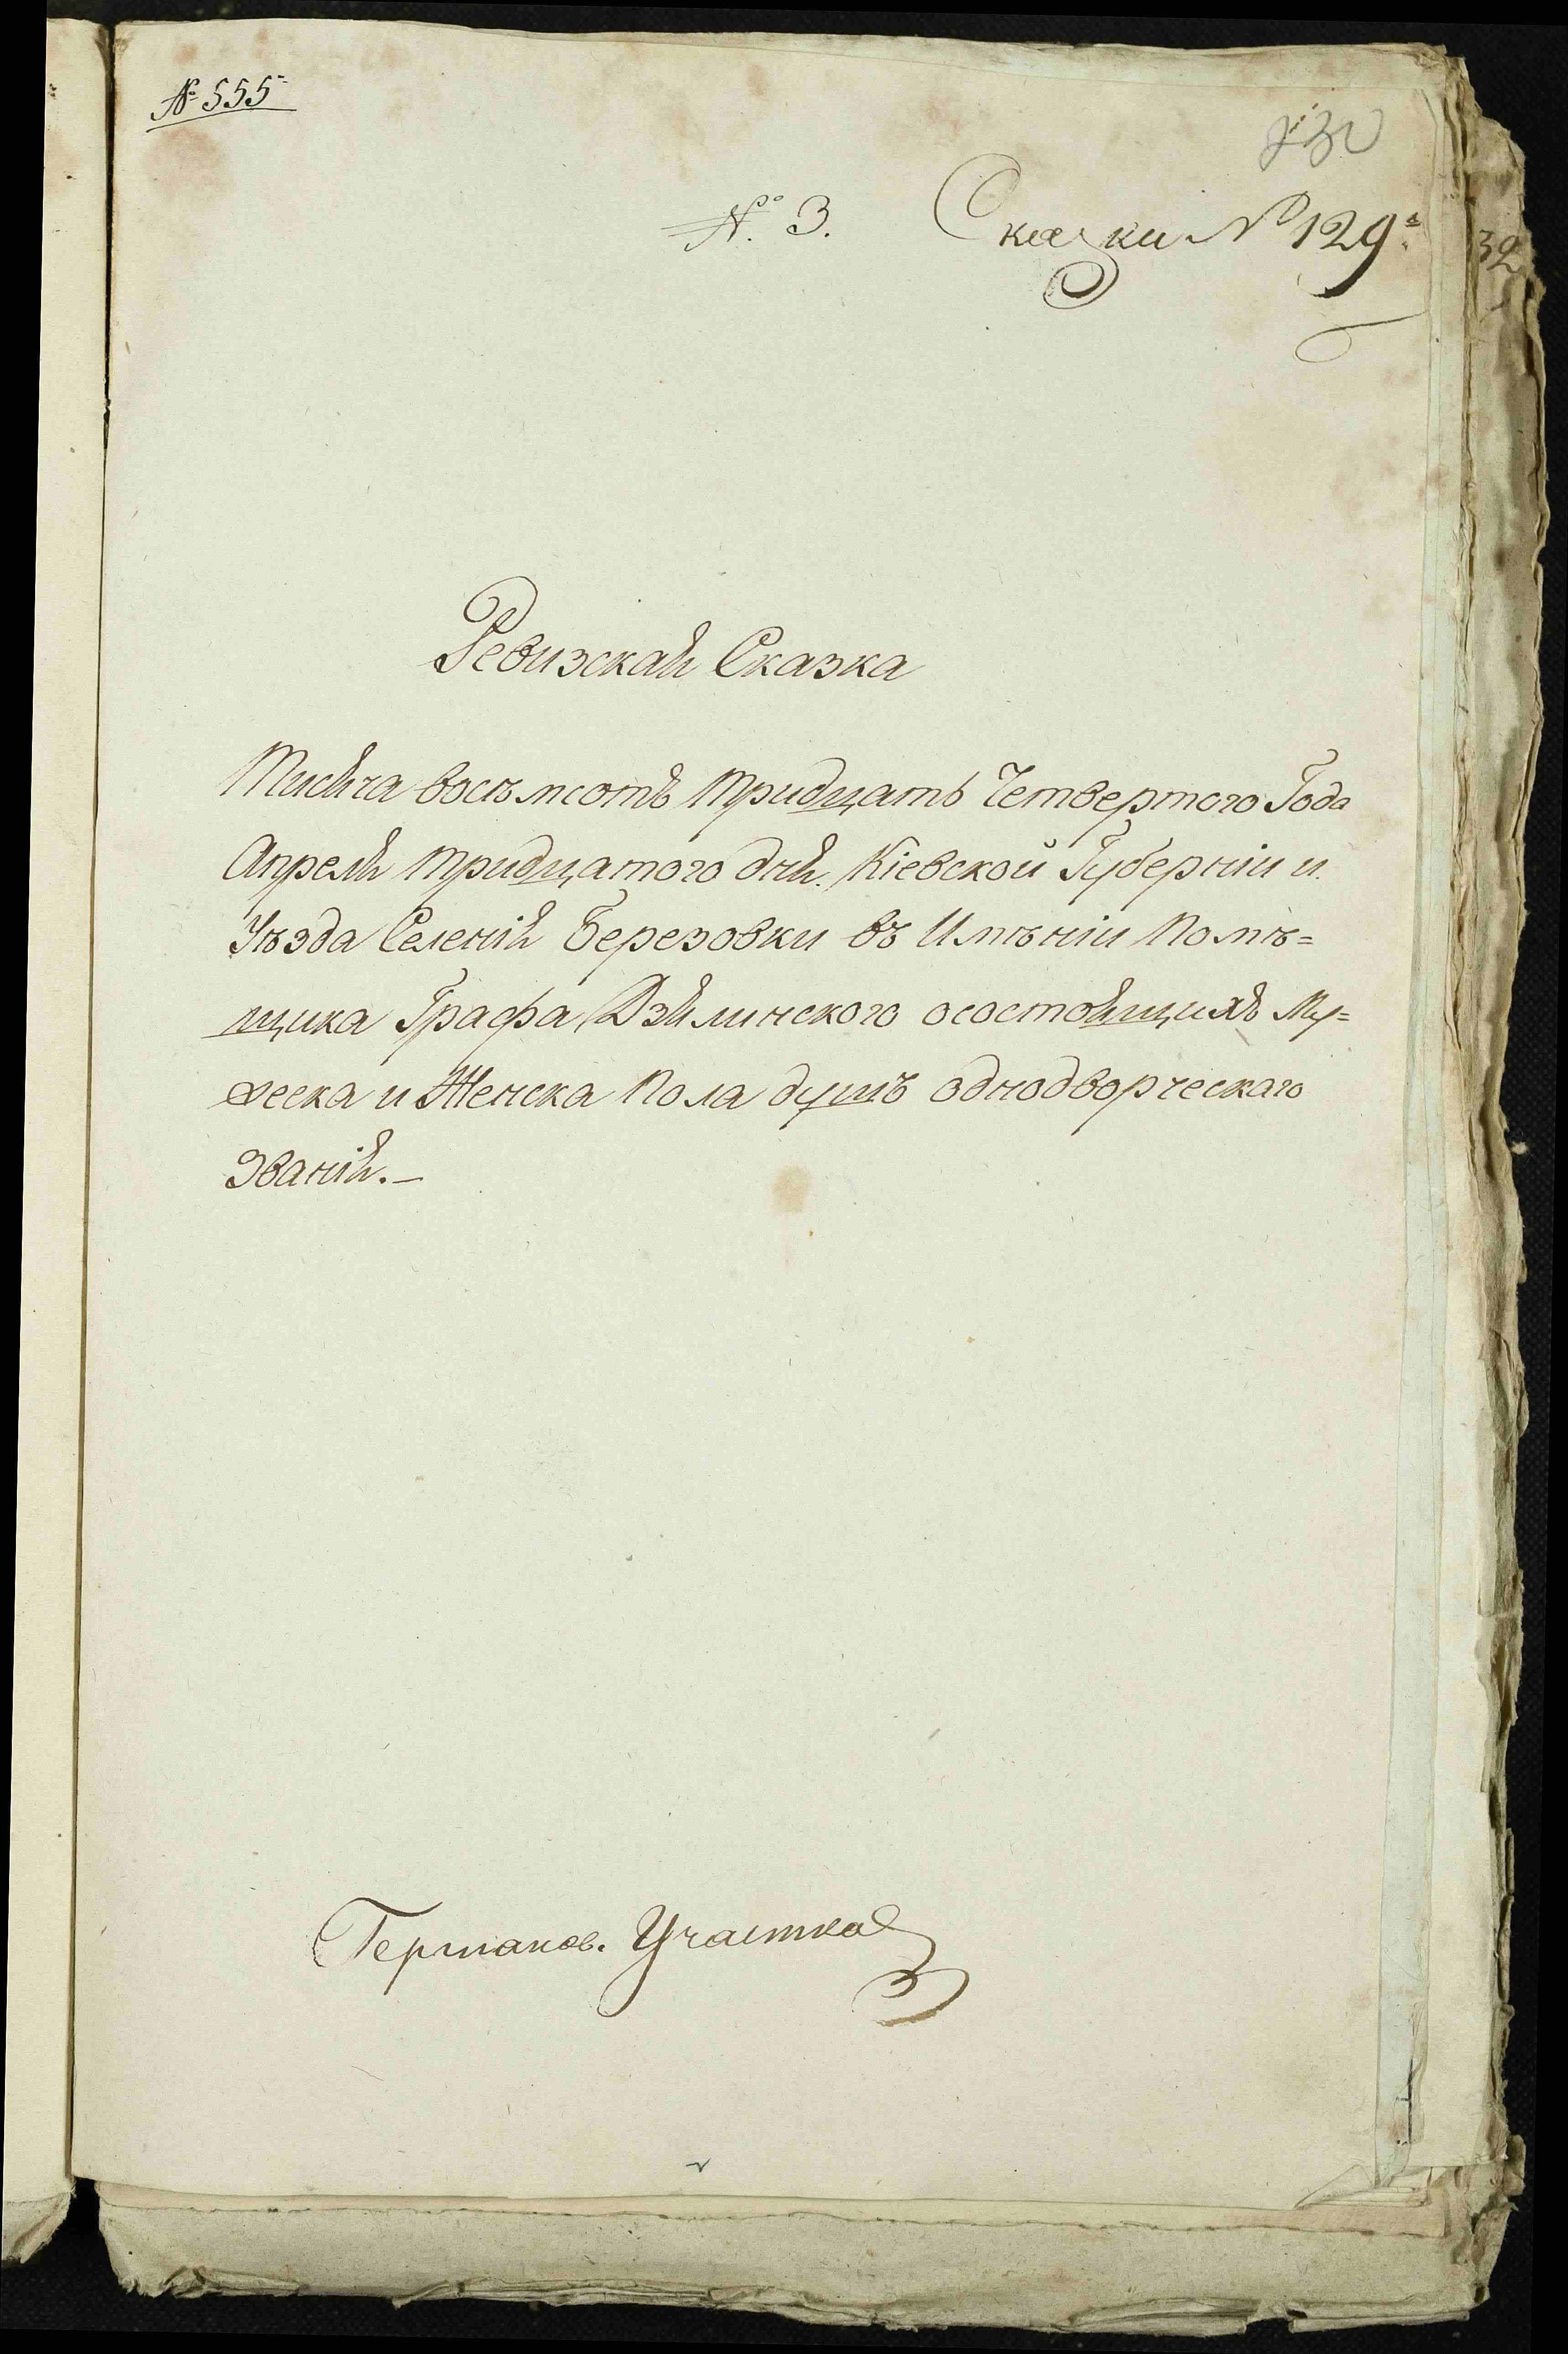 № 555
№ 3. Сказки № 129
Ревизская Сказка
Тисяча восъмсотъ тридцать Четвертого Года
Апреля тридцатого дня. Кіевской Губерніи и
Уѣзда Селенія Березовки въ Имѣніи Помѣ=
щика Графа Дзялинского осостоящихъ Му=
жеска и Женска Пола душъ однодворческаго
Званія.—
Германов. Участка